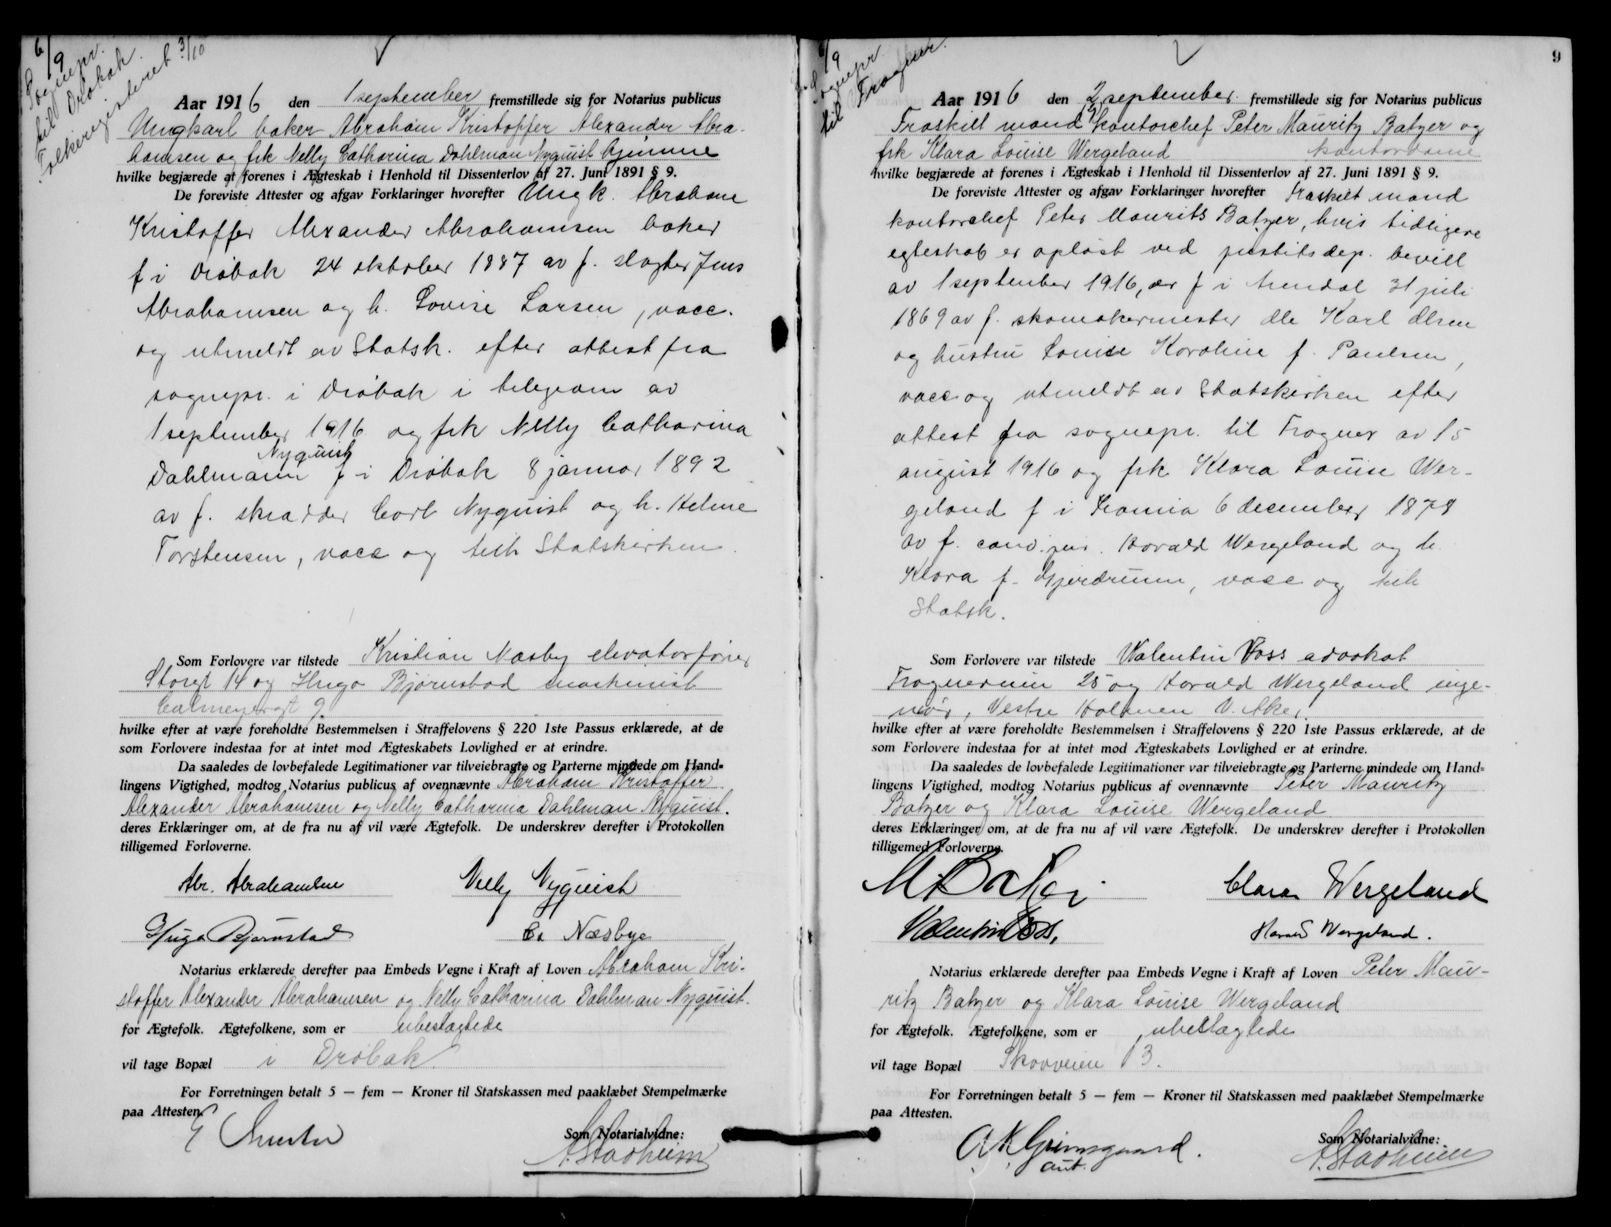 6/9
Sognepr.
til Drøbak.
Folkeregisteret 3/10
Aar 1916 den 1 september fremstillede sig for Notarius publicus
Ungkarl baker Abraham Kristoffer Alexander Abra-
hamsen og frk Nelly Catharina Dahlman Nyquist hjemme
hvilke begjærede at forenes i Ægteskab i Henhold til Dissenterlov af 27. Juni 1891 § 9.
De foreviste Attester og afgav Forklaringer hvorefter Ungk. Abraham
Kristoffer Alexander Abrahamsen baker
f i Drøbak 24 oktober 1887 av f. slagter Jens
Abrahamsen og h. Lovise Larsen, vacc.
og utmeldt av Statsk. efter attest fra
sognepr. i Drøbak i telegram av
1 september 1916 og frk Nelly Catharina
Dahlmann Nyquist f i Drøbak 8 januar 1892
av f. skrædder Carl Nyquist og h. Helene
Torstensen, vacc og tilh Statskirken.
Som Forlovere var tilstede Kristian Næsby elevatorfører
Storgt 14 og Hugo Bjørnstad maskinist
Calmeyersgt 9
hvilke efter at være foreholdte Bestemmelsen i Straffelovens § 220 1ste Passus erklærede, at de
som Forlovere indestaa for at intet mod Ægteskabets Lovlighed er at erindre.
Da saaledes de lovbefalede Legitimationer var tilveiebragte og Parterne mindede om Hand-
lingens Vigtighed, modtog Notarius publicus af ovennævnte Abraham Kristoffer
Alexander Abrahamsen og Nelly Catharina Dahlman Nyquist.
deres Erklæringer om, at de fra nu af vil være Ægtefolk. De underskrev derefter i Protokollen
tilligemed Forloverne.
Abr. Abrahamsen Nelly Nyquist
Hugo Bjørnstad Cr Næsbye
Notarius erklærede derefter paa Embeds Vegne i Kraft af Loven Abraham Kri-
stoffer Alexander Abrahamsen og Nelly Catharina Dahlman Nyquist.
for Ægtefolk. Ægtefolkene, som er ubeslægtede
vil tage Bopæl i Drøbak
For Forretningen betalt 5 — fem — Kroner til Statskassen med paaklæbet Stempelmærke
paa Attesten.
Som Notarialvidne:
A. Stadheim
9
6/9
sognepr
til Frogner.
Aar 1916 den 2 september fremstillede sig for Notarius publicus
Fraskilt mand kontorchef Peter Mauritz Batzer og
frk Klara Louise Wergeland kontordame
hvilke begjærede at forenes i Ægteskab i Henhold til Dissenterlov af 27. Juni 1891 § 9.
De foreviste Attester og afgav Forklaringer hvorefter Fraskilt mand
kontorchef Peter Maurits Batzer, hvis tidligere
egteskab er opløst ved justitsdep. bevill
av 1 september 1916, er f i Arendal 31 juli
1869 av f. skomakermester Ole Karl Olsen
og hustru Louise Karoline f. Paulsen,
vacc og utmeldt av Statskirken efter
attest fra sognepr. til Frogner av 15
august 1916 og frk Klara Louise Wer-
geland f i Krania 6 december 1878
av f. cand. jur. Harald Wergeland og h.
Klara f. Gjerdrum, vacc og tilh
Statsk.
Som Forlovere var tilstede Valentin Voss advokat
Frognerveien 25 og Harald Wergeland inge-
niør, Vestre Holmen V. Aker,
hvilke efter at være foreholdte Bestemmelsen i Straffelovens § 220 1ste Passus erklærede, at de
som Forlovere indestaa for at intet mod Ægteskabets Lovlighed er at erindre.
Da saaledes de lovbefalede Legitimationer var tilveiebragte og Parterne mindede om Hand-
lingens Vigtighed, modtog Notarius publicus af ovennævnte Peter Mauritz
Batzer og Klara Louise Wergeland
deres Erklæringer om, at de fra nu af vil være Ægtefolk. De underskrev derefter i Protokollen
tilligemed Forloverne.
M Batzer Clara Wergeland
Valentin Voss, Harald Wergeland.
Notarius erklærede derefter paa Embeds Vegne i Kraft af Loven Peter Mau-
ritz Batzer og Klara Louise Wergeland
for Ægtefolk. Ægtefolkene, som er ubeslægtede
vil tage Bopæl Skovveien 13.
For Forretningen betalt 5 — fem — Kroner til Statskassen med paaklæbet Stempelmærke
paa Attesten.
A K Grimsgaard.
aut.
Som Notarialvidne:
A. Stadheim